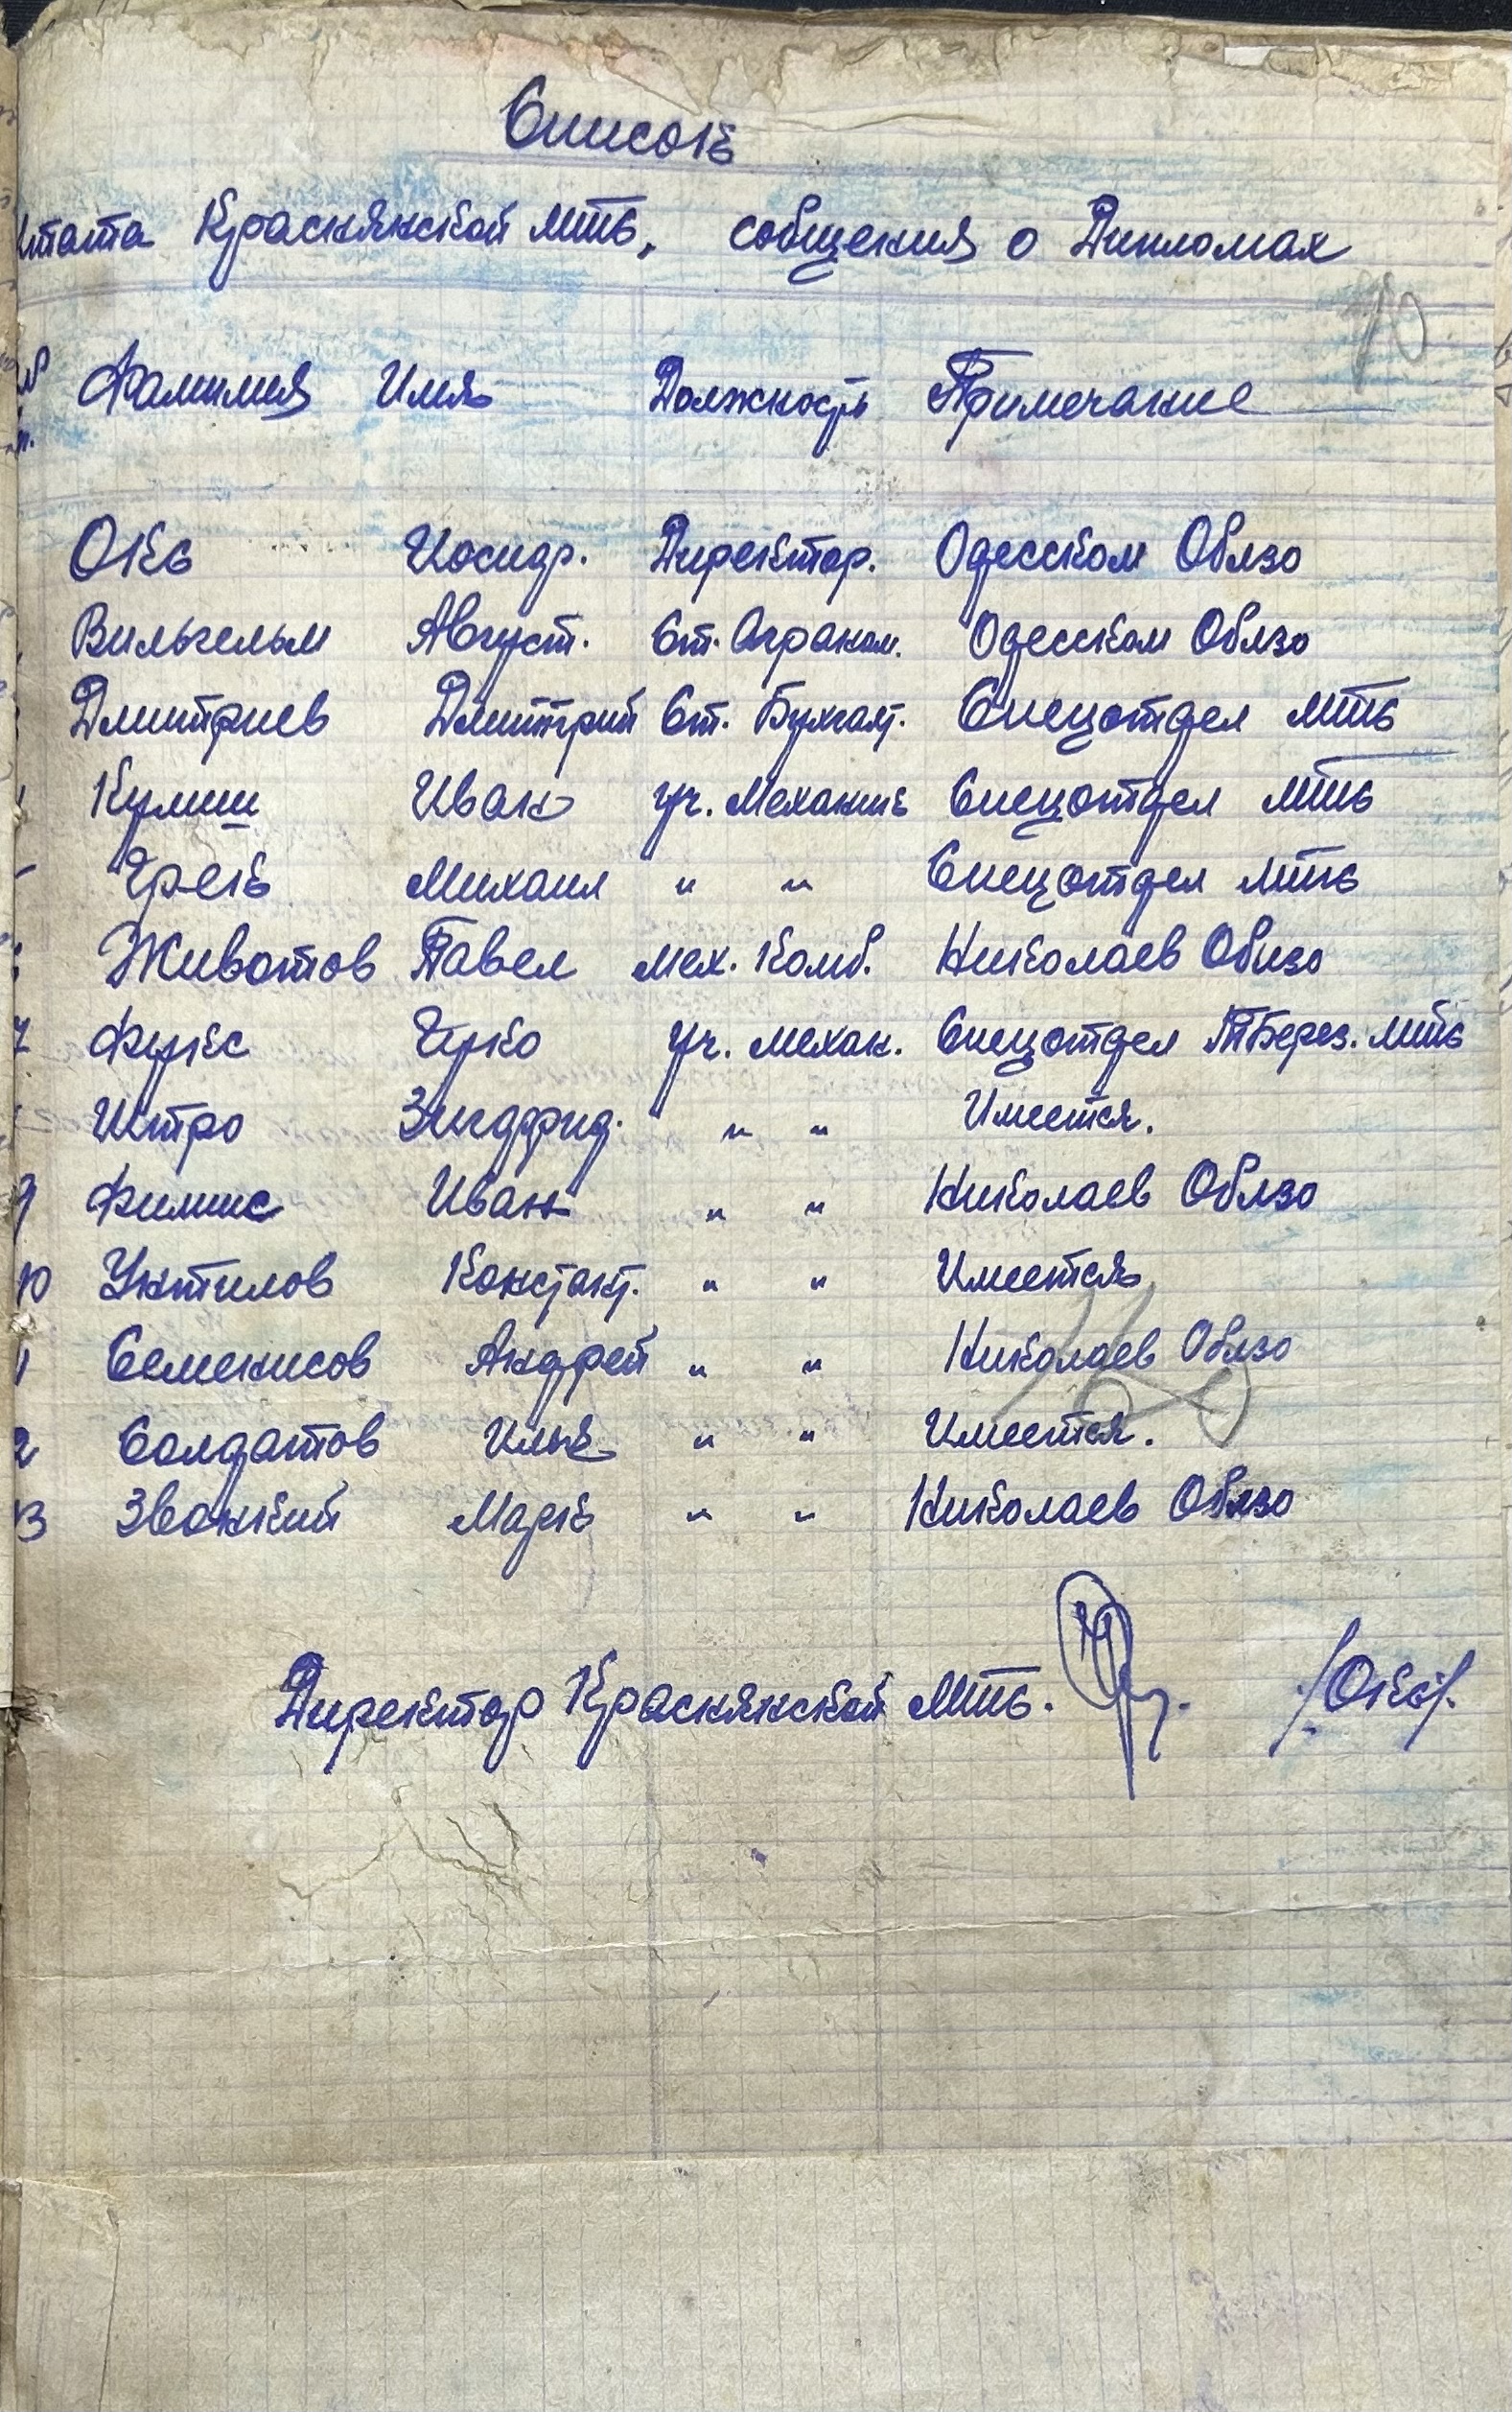 Список
штата Краснянской МТС, собщения о Дипломах
70
№ Фамилия Имя Должность Примечание
п.
Окс Иосиф. Директор. Одесском Облзо
Вильгельм Август. Ст. Агроном. Одесском Облзо
Дмитриев Дмитрий Ст. Бухгалт. Спецотдел МТС
Кулиш Иван уч. Механик Спецотдел МТС
Михаил " " Спецотдел МТС
Животов Павел мех. Комб. Николаев Облзо
7 Фукс уч. механ. Спецотдел ТБерез. МТС
Штро Зигдфрид. " " Имеется.
9 Филипс Иван " " Николаев Облзо
10 Унтилов Констант. " " Имеется
1 Семенисов Андрей " " Николаев Облзо
2 Солдатов Илья " " Имеется.
13 Званский Марк " " Николаев Облзо
Директор Краснянской МТС. /Окс/.